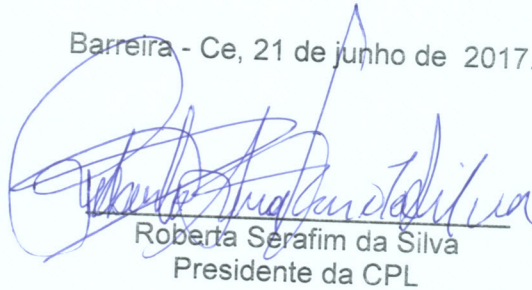 Barreira - Ce, 21 de junho de 2017.
Roberta Serafim da Silva
Roberta Serafim da Silva
Presidente da CPL